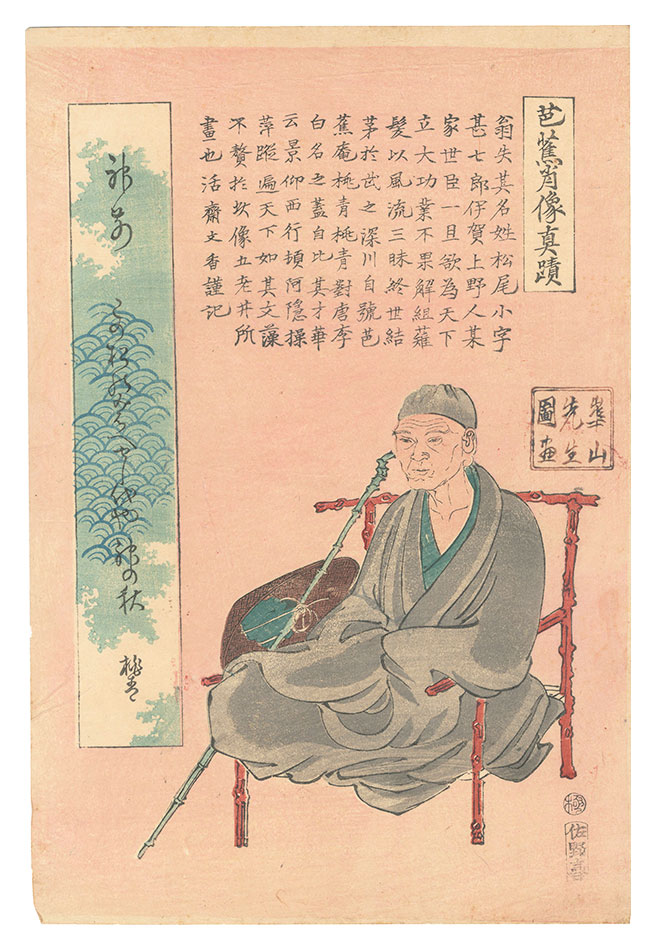 芭蕉肖像真蹟
翁失其名姓松尾小字
甚七郎伊賀上野人某
家世臣一旦欲為天下
立大功業不果解組薙
髮以風流三昧終世結
茅於武之深川自號芭
蕉庵桃青桃青對唐李
白名之蓋自比其才華
云景仰西行頓阿隱操
萍蹤遍天下如其文藻
不贅於此像五老井所
畫也活齋文香謹記
神前
この松のみばへせし代や神の秋
桃青
崋山
先生
圖画
極
佐野喜